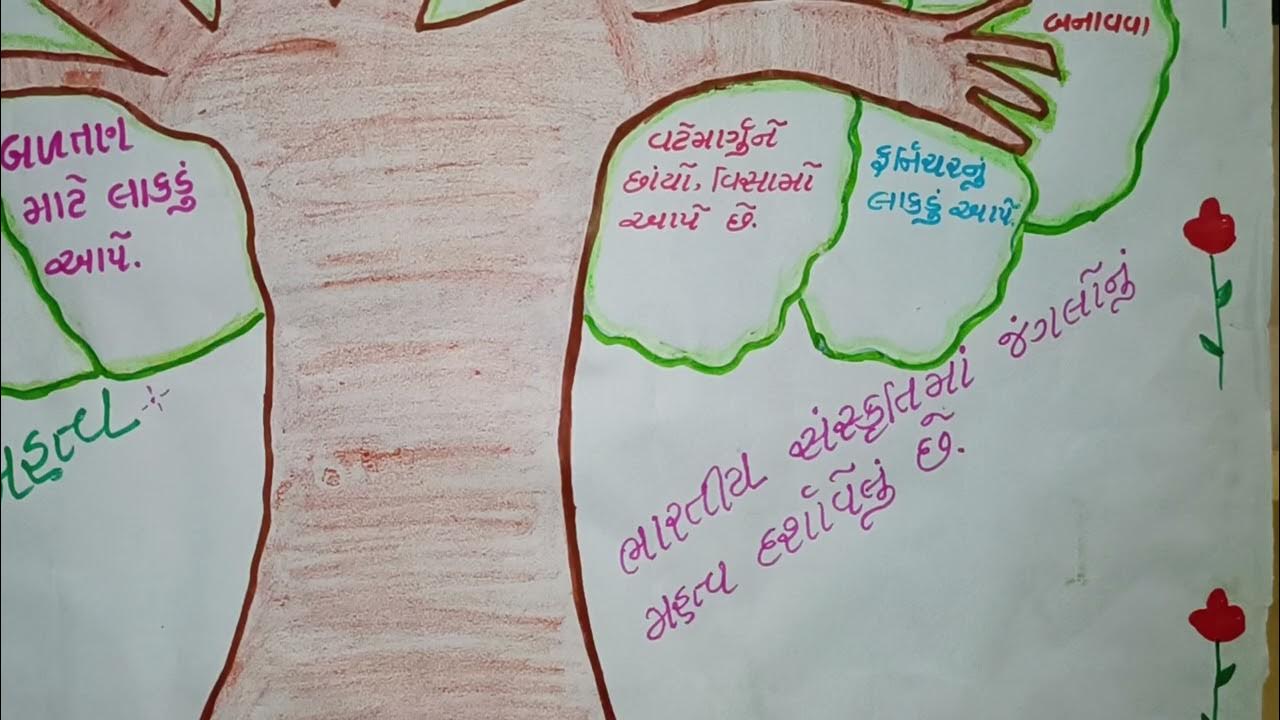 બનાવવા
બળતણ
માટે લાકડું
આપે.
વટેમાર્ગુને
છાંયો, વિસામો
આપે છે.
ફર્નિચરનું
લાકડું આપે.
મહત્વ
ભારતીય સંસ્કૃતિમાં જંગલોનું
મહત્વ દર્શાવેલું છે.